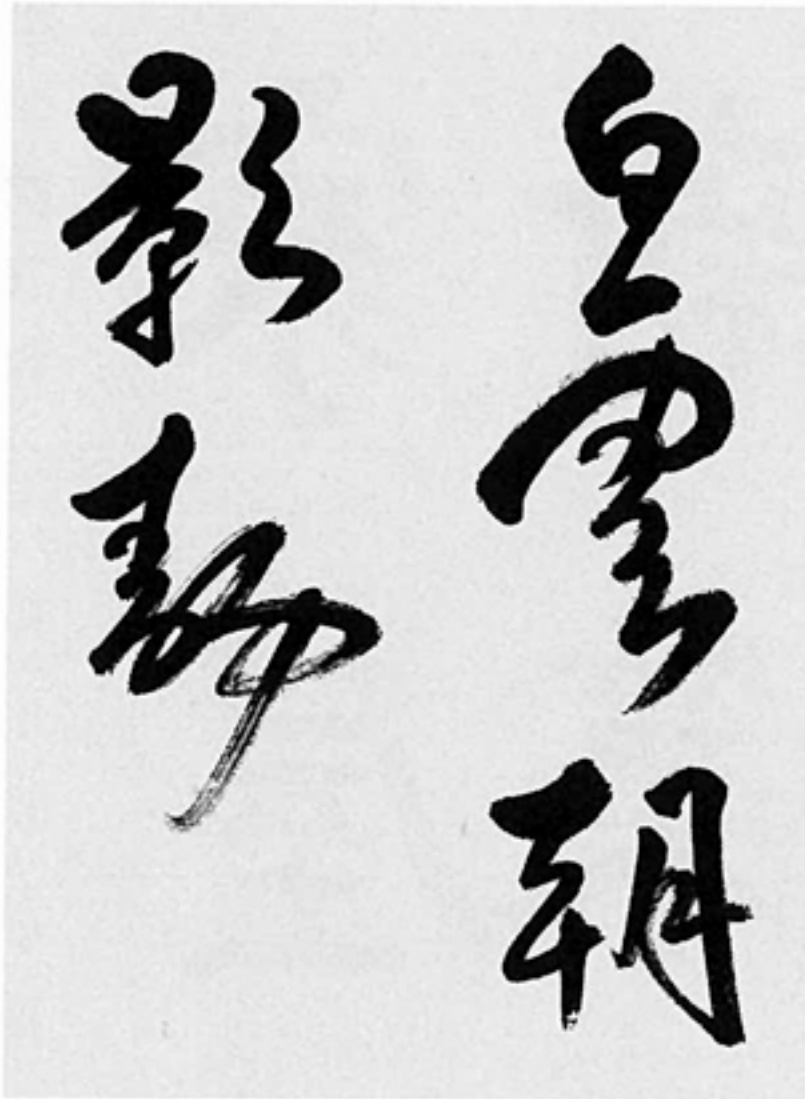 白雲朝
影動